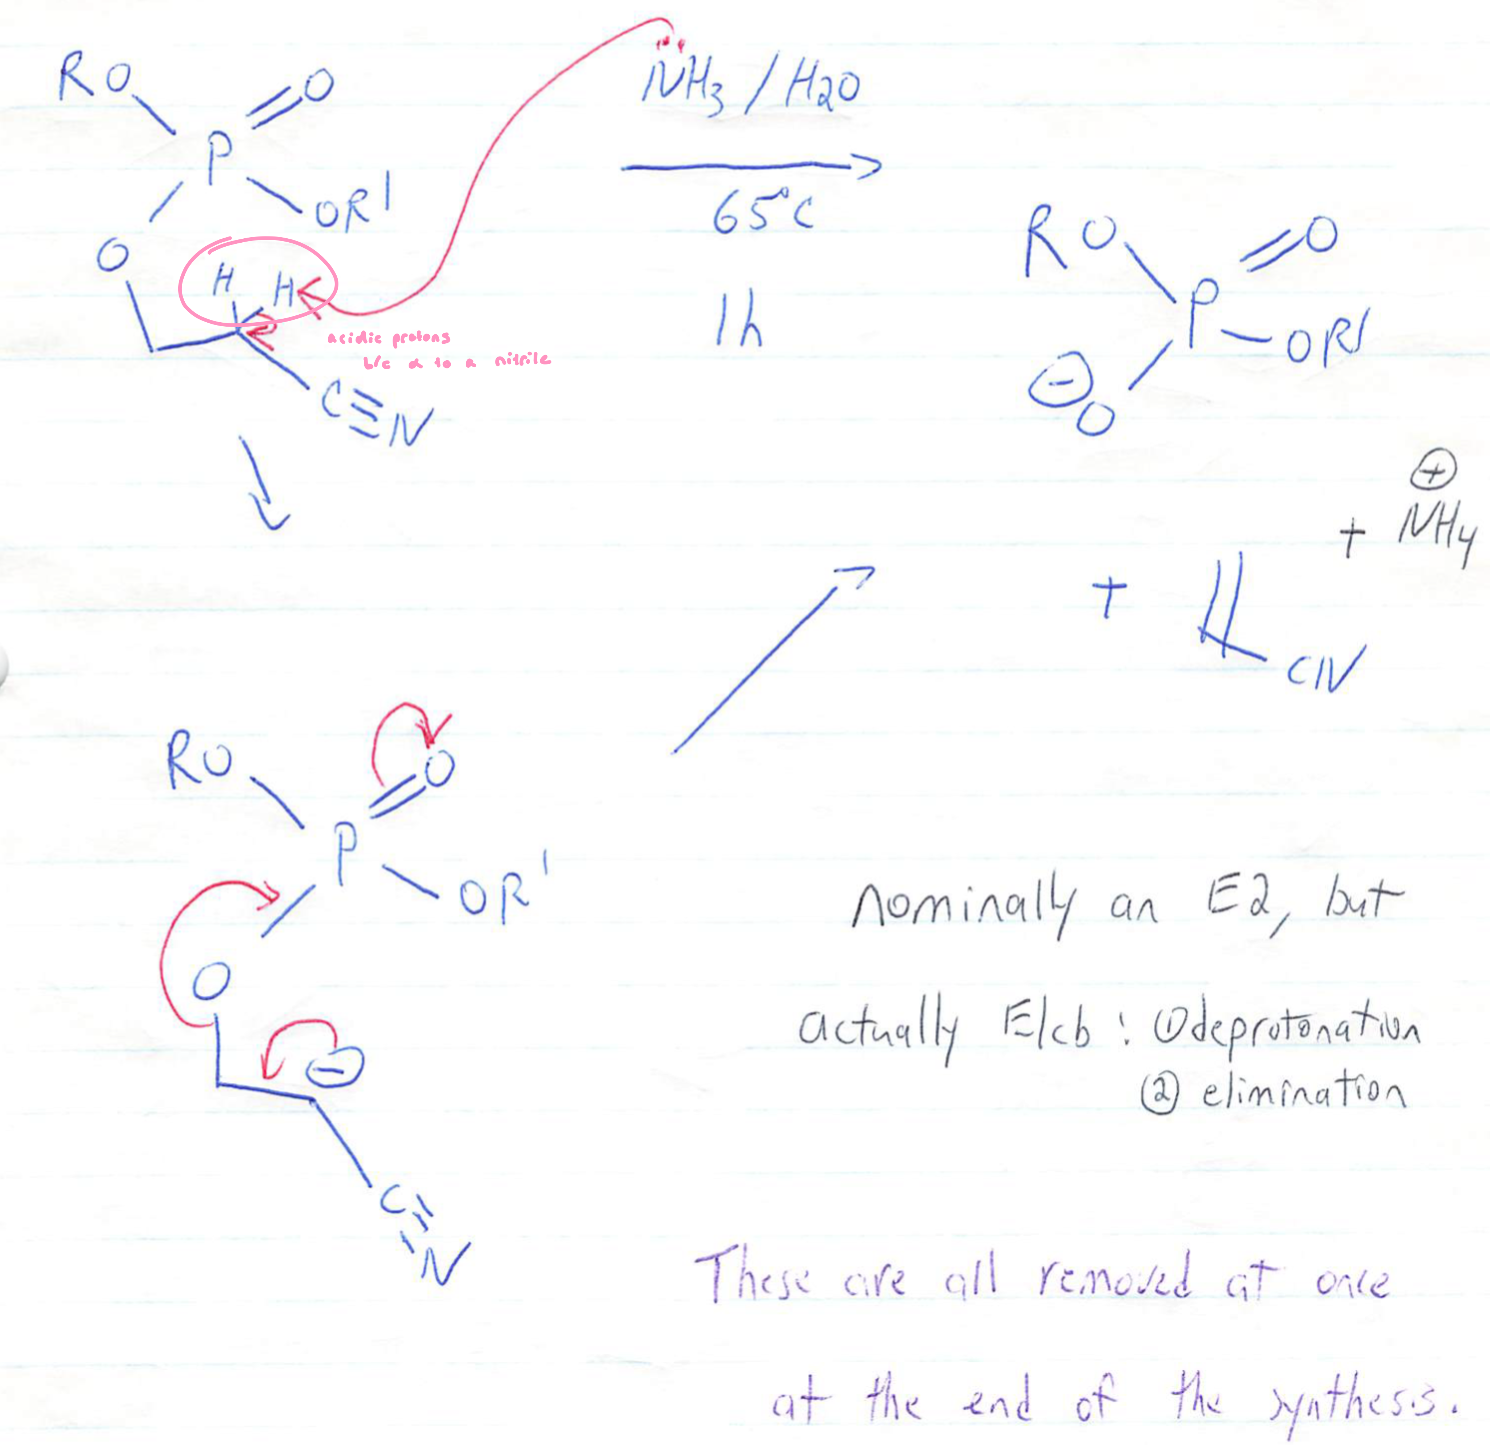 RO
O
P
OR'
O
H H
acidic protons
b/c α to a nitrile
C≡N
NH3 / H2O
65°C
1h
RO
O
P
OR'
⊖
O
⊕
+ NH4
+
CN
RO
O
P
OR'
O
⊖
C≡N
Nominally an E2, but
actually E1cb : ① deprotonation
② elimination
These are all removed at once
at the end of the synthesis.